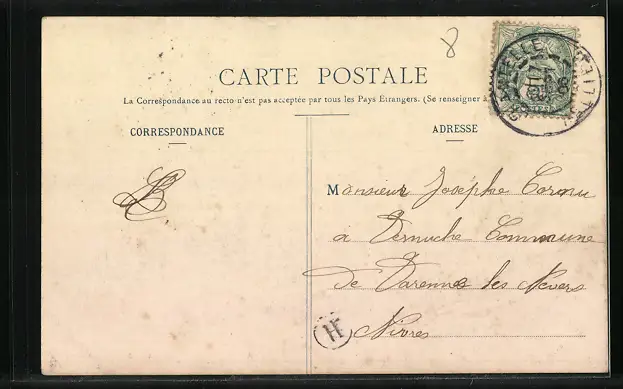 8
CARTE POSTALE
La Correspondance au recto n'est pas acceptée par tous les Pays Etrangers. (Se renseigner à
CORRESPONDANCE
ADRESSE
Monsieur Joséphe Cornu
à Vernuche Commune
de Varennes les Nevers
Nièvres
H